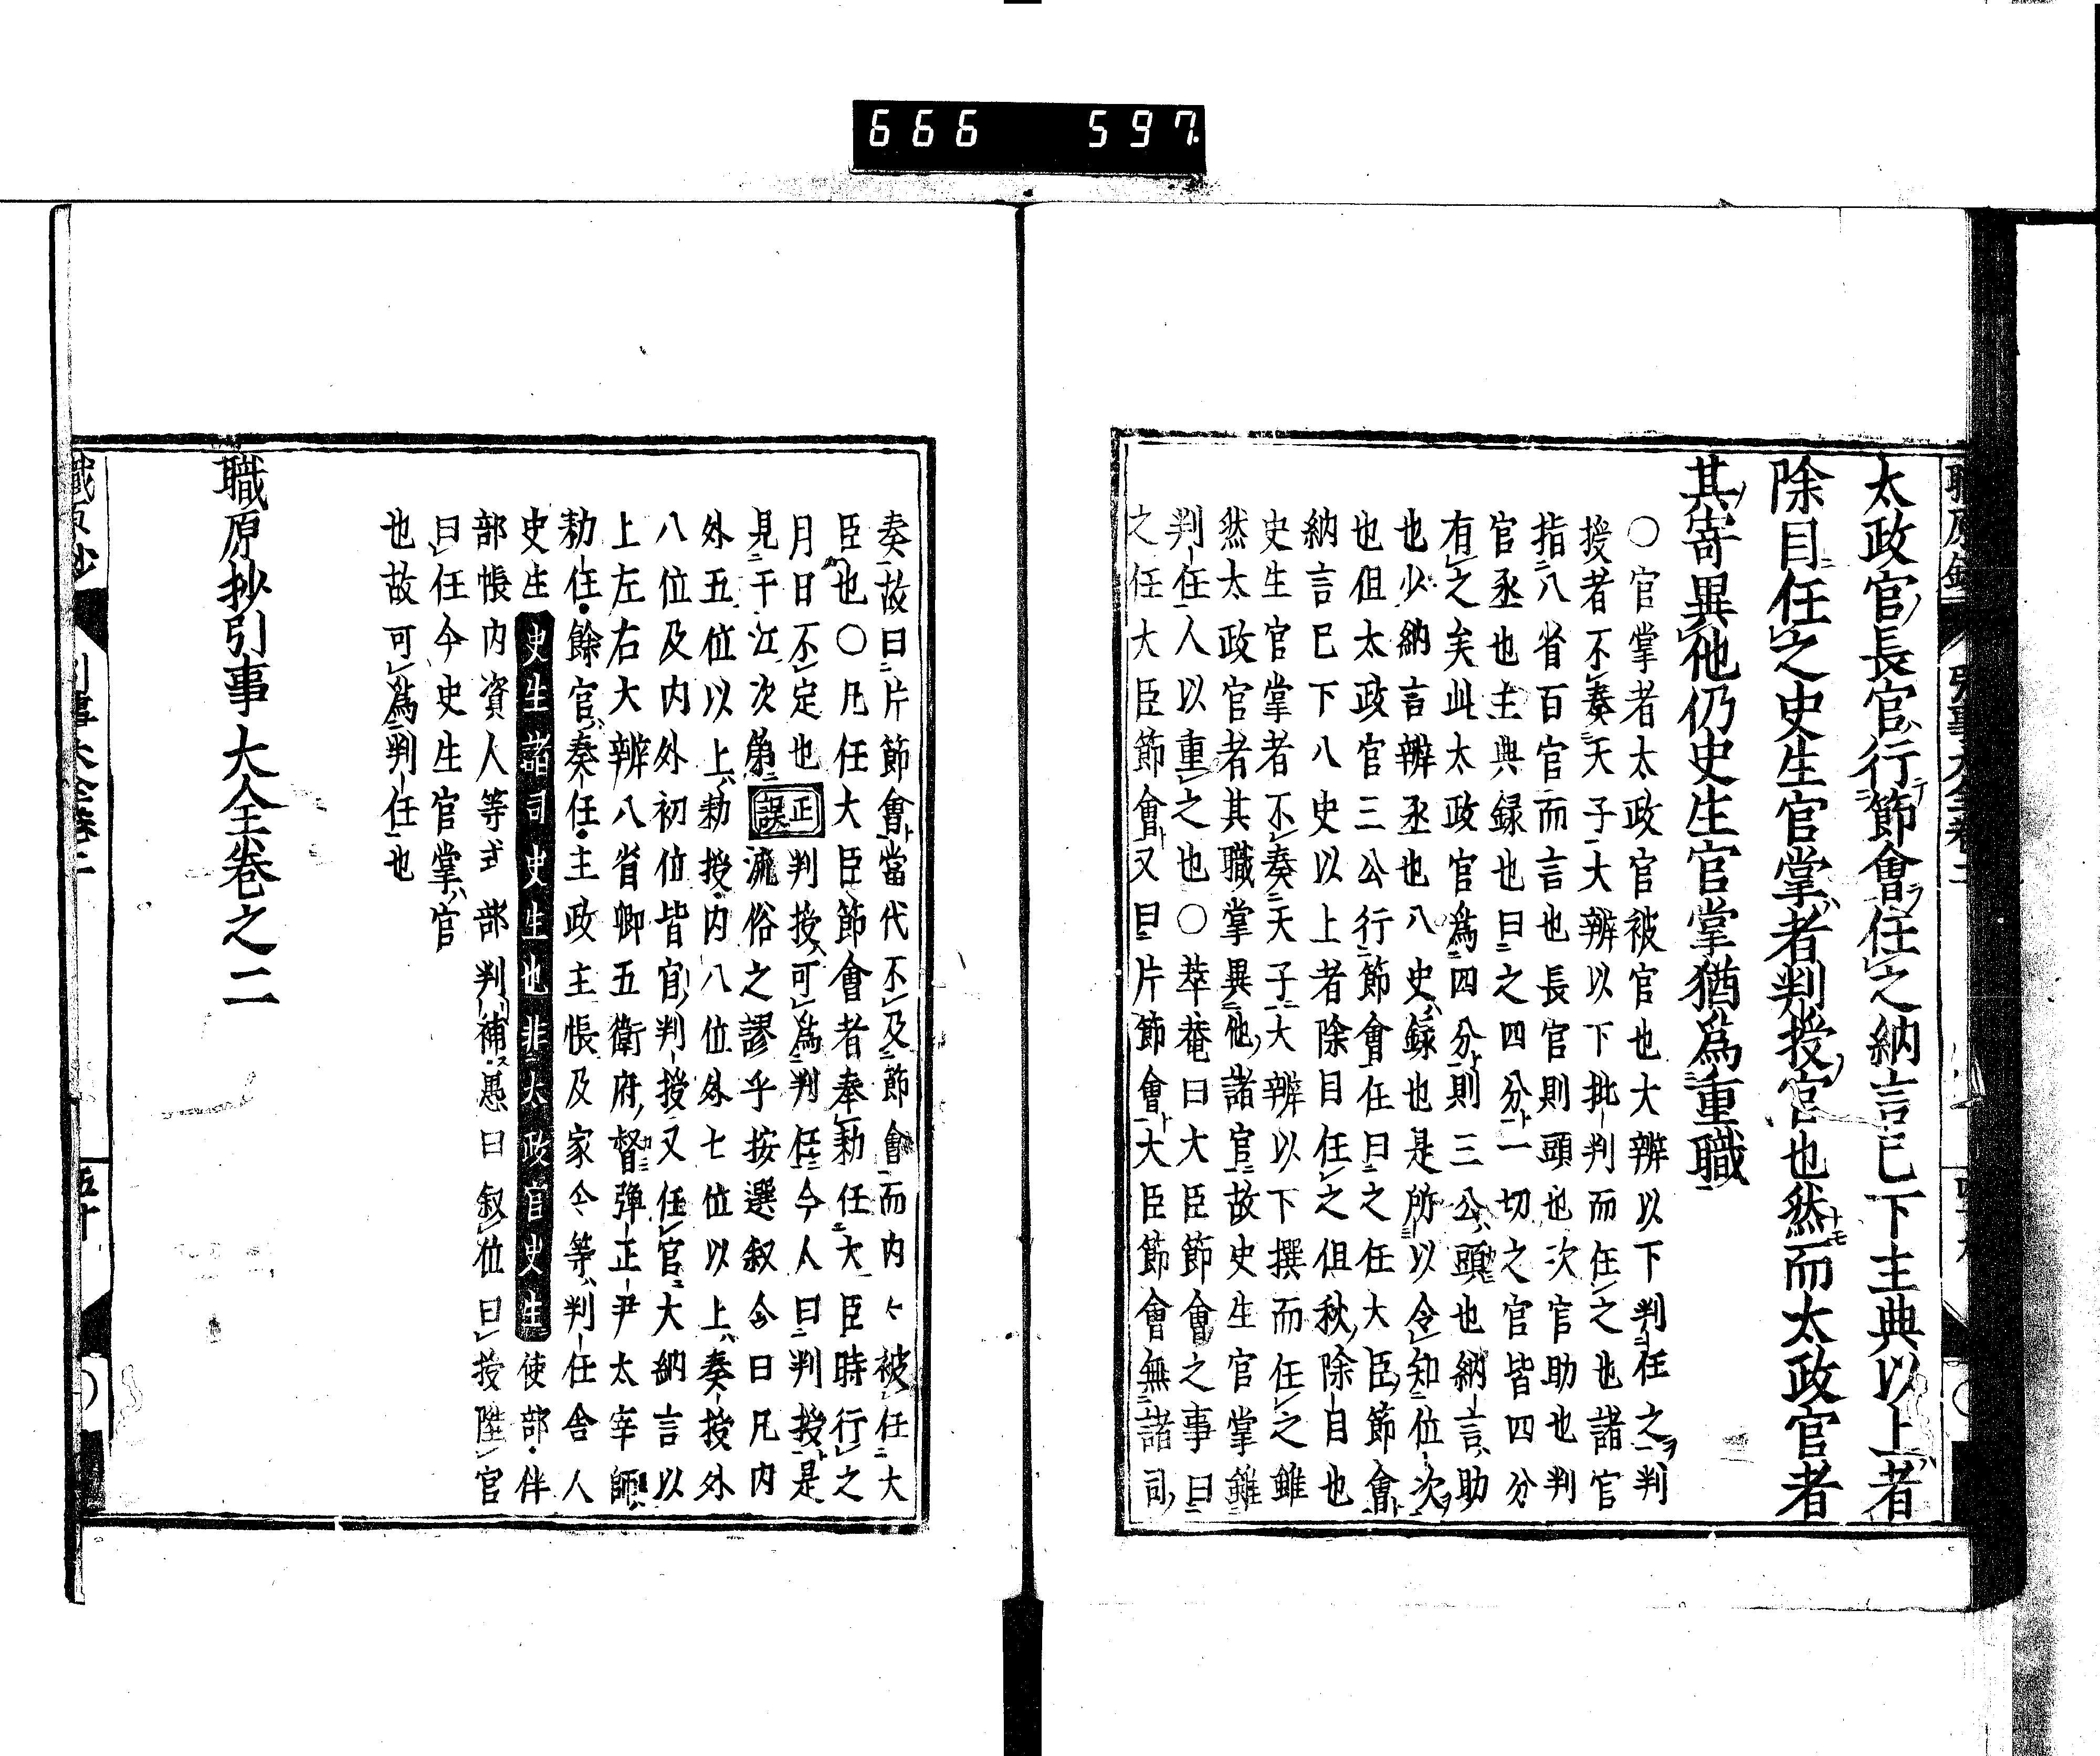 666 597
太政官長官行節會任之納言已下主典以上者
除目任之史生官掌者判授官也然而太政官者
其寄異他仍史生官掌猶爲重職
〇官掌者太政官被官也大辨以下判任之判
授者不奏天子大辨以下批判而任之也諸官
指八省百官而言也長官則頭也次官助也判
官丞也主典録也曰之四分一切之官皆四分
有之矣此太政官爲四分則三公頭也納言助
也少納言辨丞也八史録也是所以令知位次
也但太政官三公行節會任曰之任大臣節會
納言已下八史以上者除目任之但秋除目也
史生官掌者不奏天子大辨以下撰而任之雖
然太政官者其職掌異他諸官故史生官掌雖
判任人以重之也〇萃菴曰大臣節會之事曰
之任大臣節會又曰片節會大臣節會無諸司
奏故曰片節會當代不及節會而内々被任大
臣也〇凡任大臣節會者奉勅任大臣時行之
月日不定也正誤判授可爲判任今人曰判授是
見于江次第流俗之謬乎按選叙令曰凡内
外五位以上勅授内八位外七位以上奏授外
八位及内外初位皆官判授又任官大納言以
上左右大辨八省卿五衛府督彈正尹太宰帥
勅任餘官奏任主政主帳及家令等判任舎人
史生史生諸司史生也非太政官史生使部伴
部帳内資人等式部判補愚曰叙位曰授陞官
曰任今史生官掌官
也故可爲判任也
職原抄引事大全卷之二